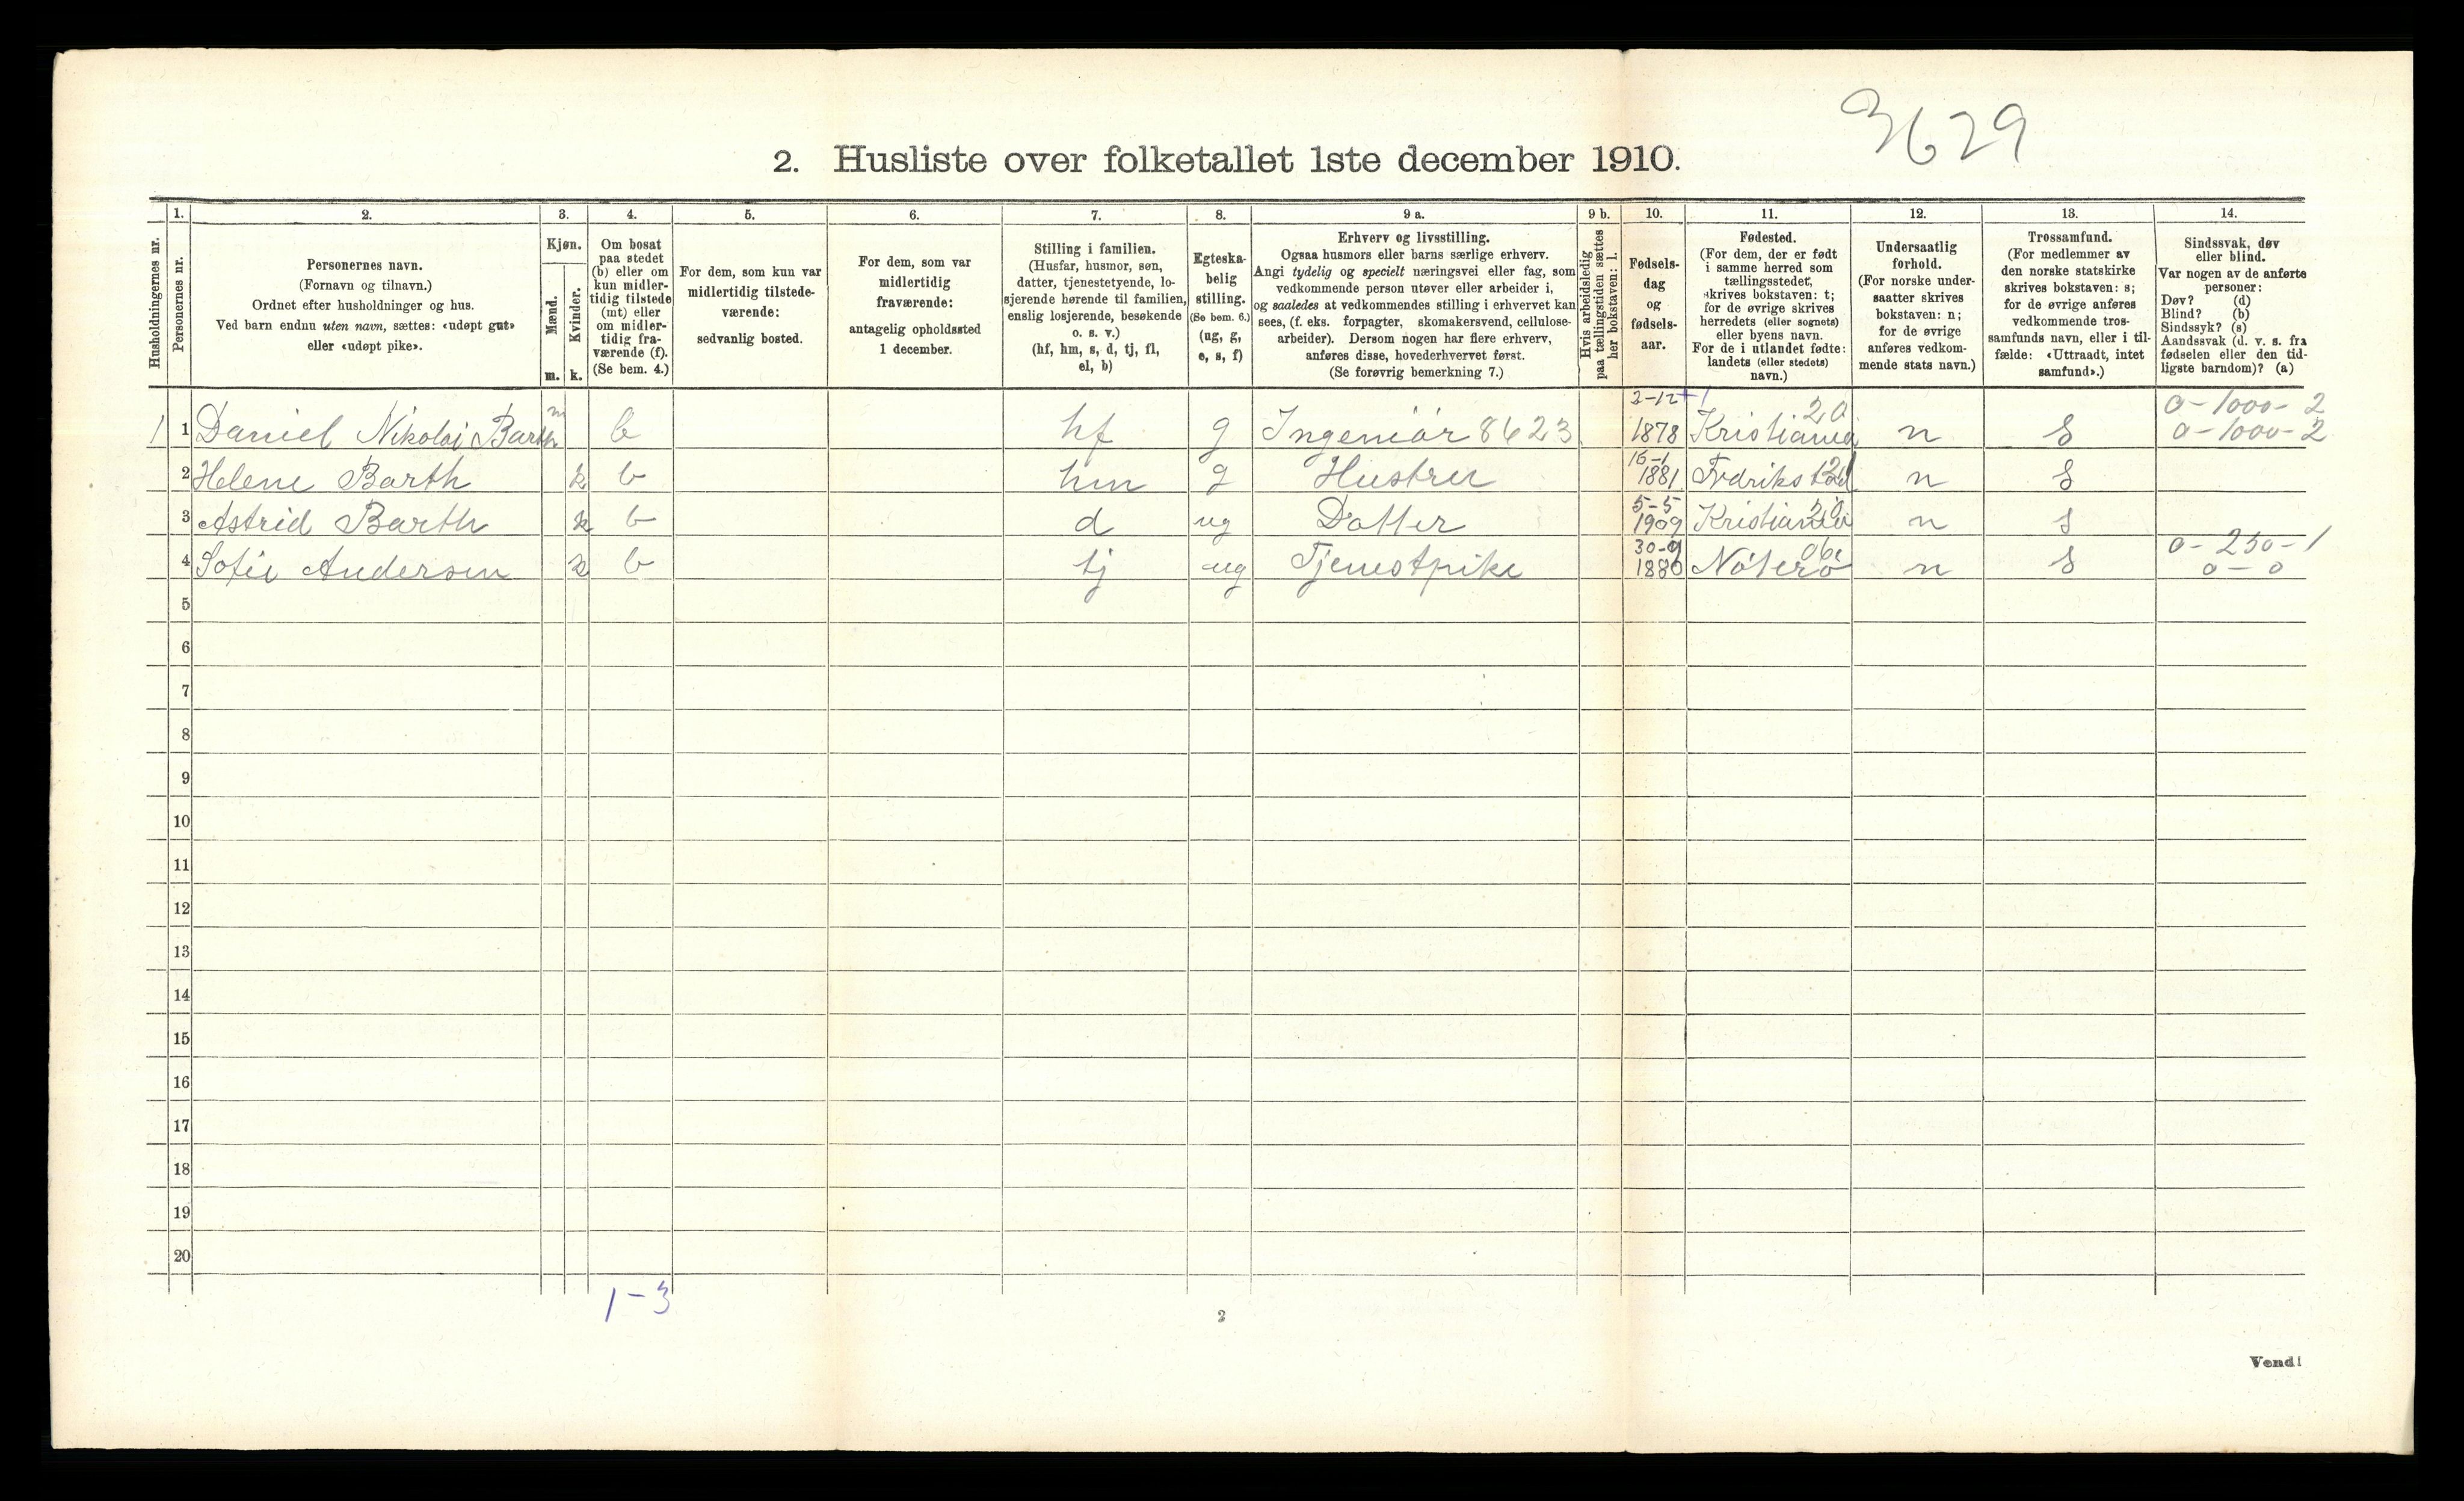 3629
2. Husliste over folketallet 1ste december 1910.
Husholdningernes nr.
1.
Personernes nr.
2.
Personernes navn.
(Fornavn og tilnavn.)
Ordnet efter husholdninger og hus.
Ved barn endnu uten navn, sættes: «udøpt gut»
eller «udøpt pike».
3.
Kjøn.
Mænd.
Kvinder.
m. k.
4.
Om bosat
paa stedet
(b) eller om
kun midler-
tidig tilstede
(mt) eller
om midler-
tidig fra-
værende (f).
(Se bem. 4.)
5.
For dem, som kun var
midlertidig tilstede-
værende:
sedvanlig bosted.
6.
For dem, som var
midlertidig
fraværende:
antagelig opholdssted
1 december.
7.
Stilling i familien.
(Husfar, husmor, søn,
datter, tjenestetyende, lo-
sjerende hørende til familien,
enslig losjerende, besøkende
o. s. v.)
(hf, hm, s, d, tj, fl,
el, b)
8.
Egteska-
belig
stilling.
(Se bem. 6.)
(ug, g,
e, s, f)
9 a.
Erhverv og livsstilling.
Ogsaa husmors eller barns særlige erhverv.
Angi tydelig og specielt næringsvei eller fag, som
vedkommende person utøver eller arbeider i,
og saaledes at vedkommendes stilling i erhvervet kan
sees, (f. eks. forpagter, skomakersvend, cellulose-
arbeider). Dersom nogen har flere erhverv,
anføres disse, hovederhvervet først.
(Se forøvrig bemerkning 7.)
9 b.
Hvis arbeidsledig
paa tællingstiden sættes
her bokstaven: l.
10.
Fødsels-
dag
og
fødsels-
aar.
11.
Fødested.
(For dem, der er født
i samme herred som
tællingsstedet,
skrives bokstaven: t;
for de øvrige skrives
herredets (eller sognets)
eller byens navn.
For de i utlandet fødte:
landets (eller stedets)
navn.)
12.
Undersaatlig
forhold.
(For norske under-
saatter skrives
bokstaven: n;
for de øvrige
anføres vedkom-
mende stats navn.)
13.
Trossamfund.
(For medlemmer av
den norske statskirke
skrives bokstaven: s;
for de øvrige anføres
vedkommende tros-
samfunds navn, eller i til-
fælde: «Uttraadt, intet
samfund».)
14.
Sindssvak, døv
eller blind.
Var nogen av de anførte
personer:
Døv? (d)
Blind? (b)
Sindssyk? (s)
Aandssvak (d. v. s. fra
fødselen eller den tid-
ligste barndom)? (a)
m 2-12 + 1 20 0-1000-2
1 1 Daniel Nikolai Barth b hf g Ingeniør 8623 1878 Kristiania n s 0-1000-2
16-1 12
2 Helene Barth k b hm g Hustru 1881 Fredrikstad n s
5-5 20
3 Astrid Barth k b d ug Datter 1909 Kristiania n s
30-9 06 0-250-1
4 Sofie Andersen k b tj ug Tjenestpike 1880 Nøterø n s 0-0
5
6
7
8
9
10
11
12
13
14
15
16
17
18
19
20
1-3
2
Vend!